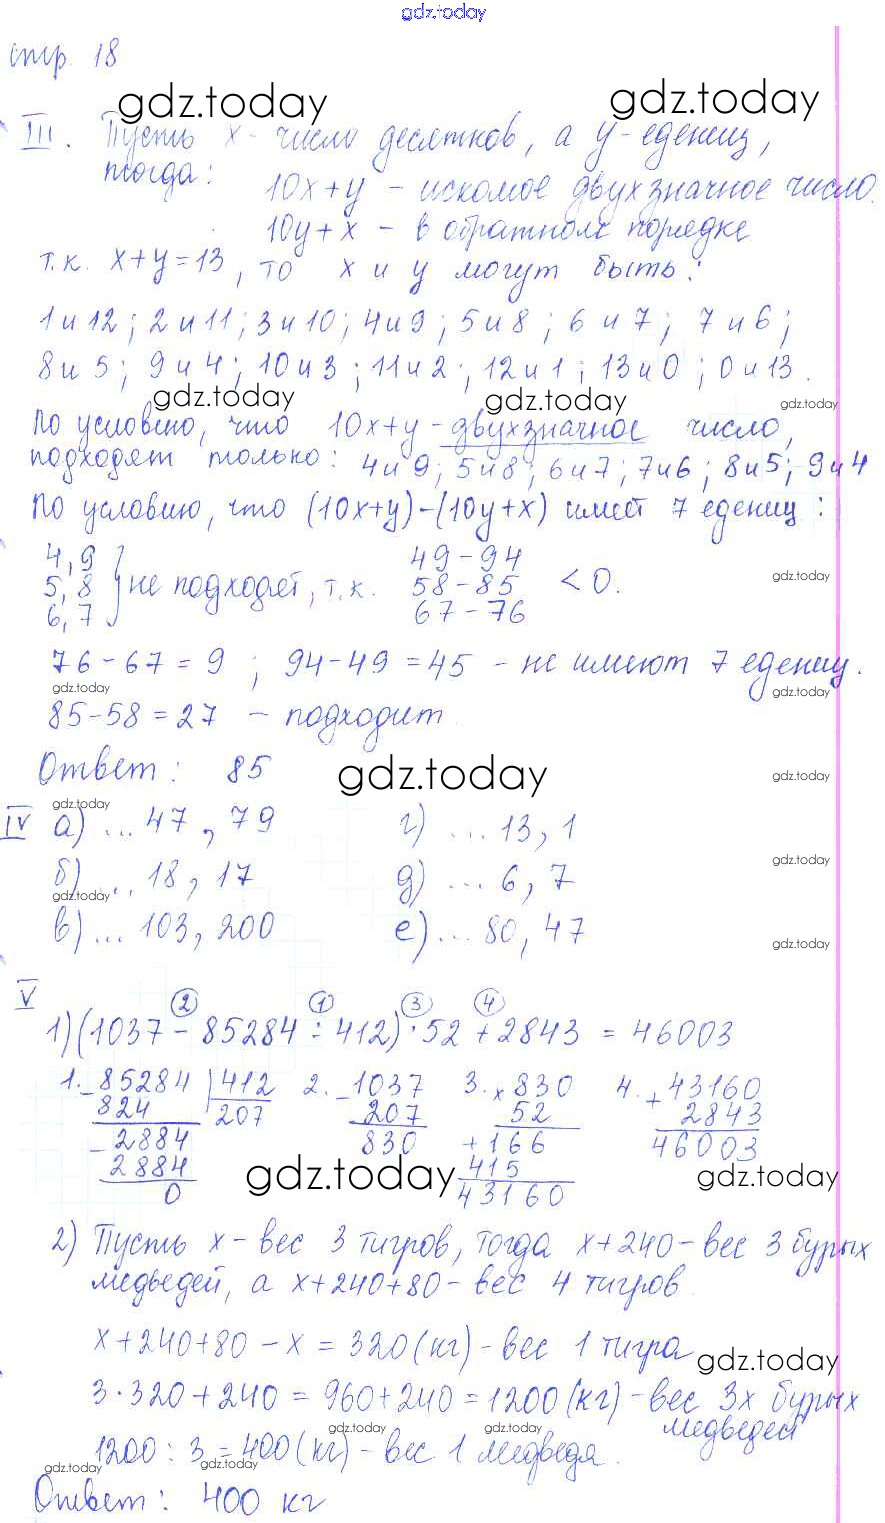 gdz.today
стр. 18
gdz.today gdz.today
III. Пусть x - число десятков, а y - едениц,
тогда: 10x+y - искомое двухзначное число.
10y+x - в обратном порядке
т.к. x+y=13, то x и y могут быть:
1 и 12; 2 и 11; 3 и 10; 4 и 9; 5 и 8; 6 и 7; 7 и 6;
8 и 5; 9 и 4; 10 и 3; 11 и 2; 12 и 1; 13 и 0; 0 и 13.
gdz.today gdz.today gdz.today
По условию, что 10x+y - двухзначное число,
подходят только: 4 и 9; 5 и 8; 6 и 7; 7 и 6; 8 и 5; 9 и 4
По условию, что (10x+y)-(10y+x) имеет 7 едениц:
4, 9 49-94
5, 8 } не подходят, т.к. 58-85 < 0.
6, 7 67-76
gdz.today
76-67=9; 94-49=45 - не имеют 7 едениц.
gdz.today gdz.today
85-58=27 - подходит.
Ответ: 85
gdz.today gdz.today
gdz.today
IV а) ...47, 79 г) ...13, 1
б) ...18, 17 д) ...6, 7
gdz.today gdz.today
в) ...103, 200 е) ...80, 47
gdz.today
V
2 1 3 4
1) (1037 - 85284 : 412) · 52 + 2843 = 46003
1. - 85284 | 412 2. - 1037 3. x 830 4. + 43160
824 207 207 52 2843
- 2884 830 + 166 46003
2884 415
0 43160
gdz.today gdz.today
2) Пусть x - вес 3 тигров, тогда x+240 - вес 3 бурых
медведей, а x+240+80 - вес 4 тигров.
x+240+80-x=320(кг) - вес 1 тигра
gdz.today
3·320+240=960+240=1200(кг) - вес 3х бурых
медведей
gdz.today gdz.today
1200:3=400(кг) - вес 1 медведя.
gdz.today gdz.today
Ответ: 400 кг